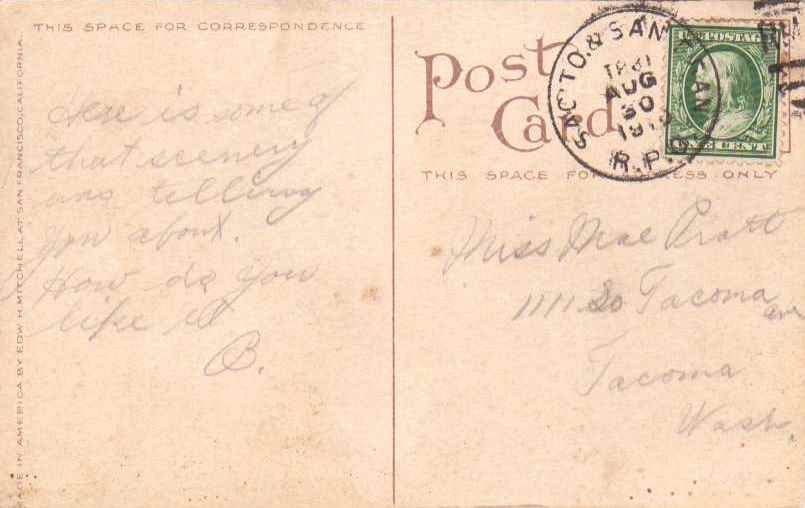 THIS SPACE FOR CORRESPONDENCE
Here is some of
that scenery
was telling
you about.
How do you
like it
B.
MADE IN AMERICA BY EDW. H. MITCHELL, AT SAN FRANCISCO, CALIFORNIA.
Post
Card
THIS SPACE FOR ADDRESS ONLY
SAC'TO. & SAN FRAN
TR 31
AUG
30
R.P.O.
U.S. POSTAGE
ONE CENT
Miss Mae Pratt
1111 So Tacoma
ave
Tacoma
Wash.